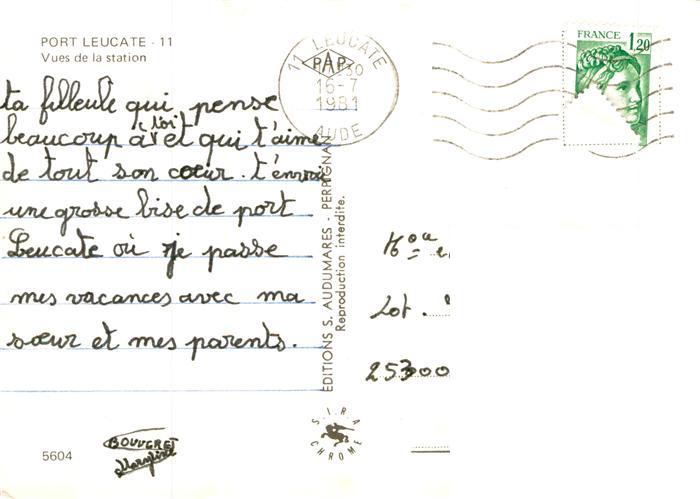 PORT LEUCATE - 11
Vues de la station
11 LEUCATE
PAP
16-7
1981
AUDE
FRANCE 1,20
ta filleule qui pense
beaucoup à toi et qui t'aime
de tout son cœur. t'envoie
une grosse bise de port
Leucate où je passe
mes vacances avec ma
sœur et mes parents.
BOUVERET
5604
EDITIONS S. AUDUMARES - PERPIGNAN
Reproduction interdite.
S.I.R.A
CHROME
Lot.
25300